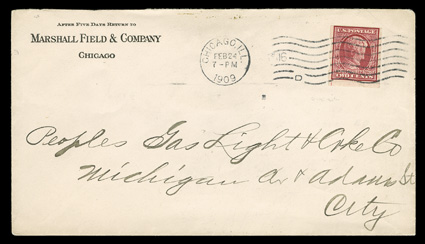 AFTER FIVE DAYS RETURN TO
MARSHALL FIELD & COMPANY
CHICAGO
CHICAGO, ILL.
FEB 24
7-PM
1909
U.S. POSTAGE
TWO CENTS
Peoples Gas Light & Coke Co
Michigan Av & Adams St
City